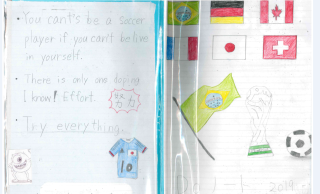 • You can't's be a Soccer
player if you can't be live
in yourself.
• There is only one doping
I know! Effort.
努力
• Try everything.
10
2019